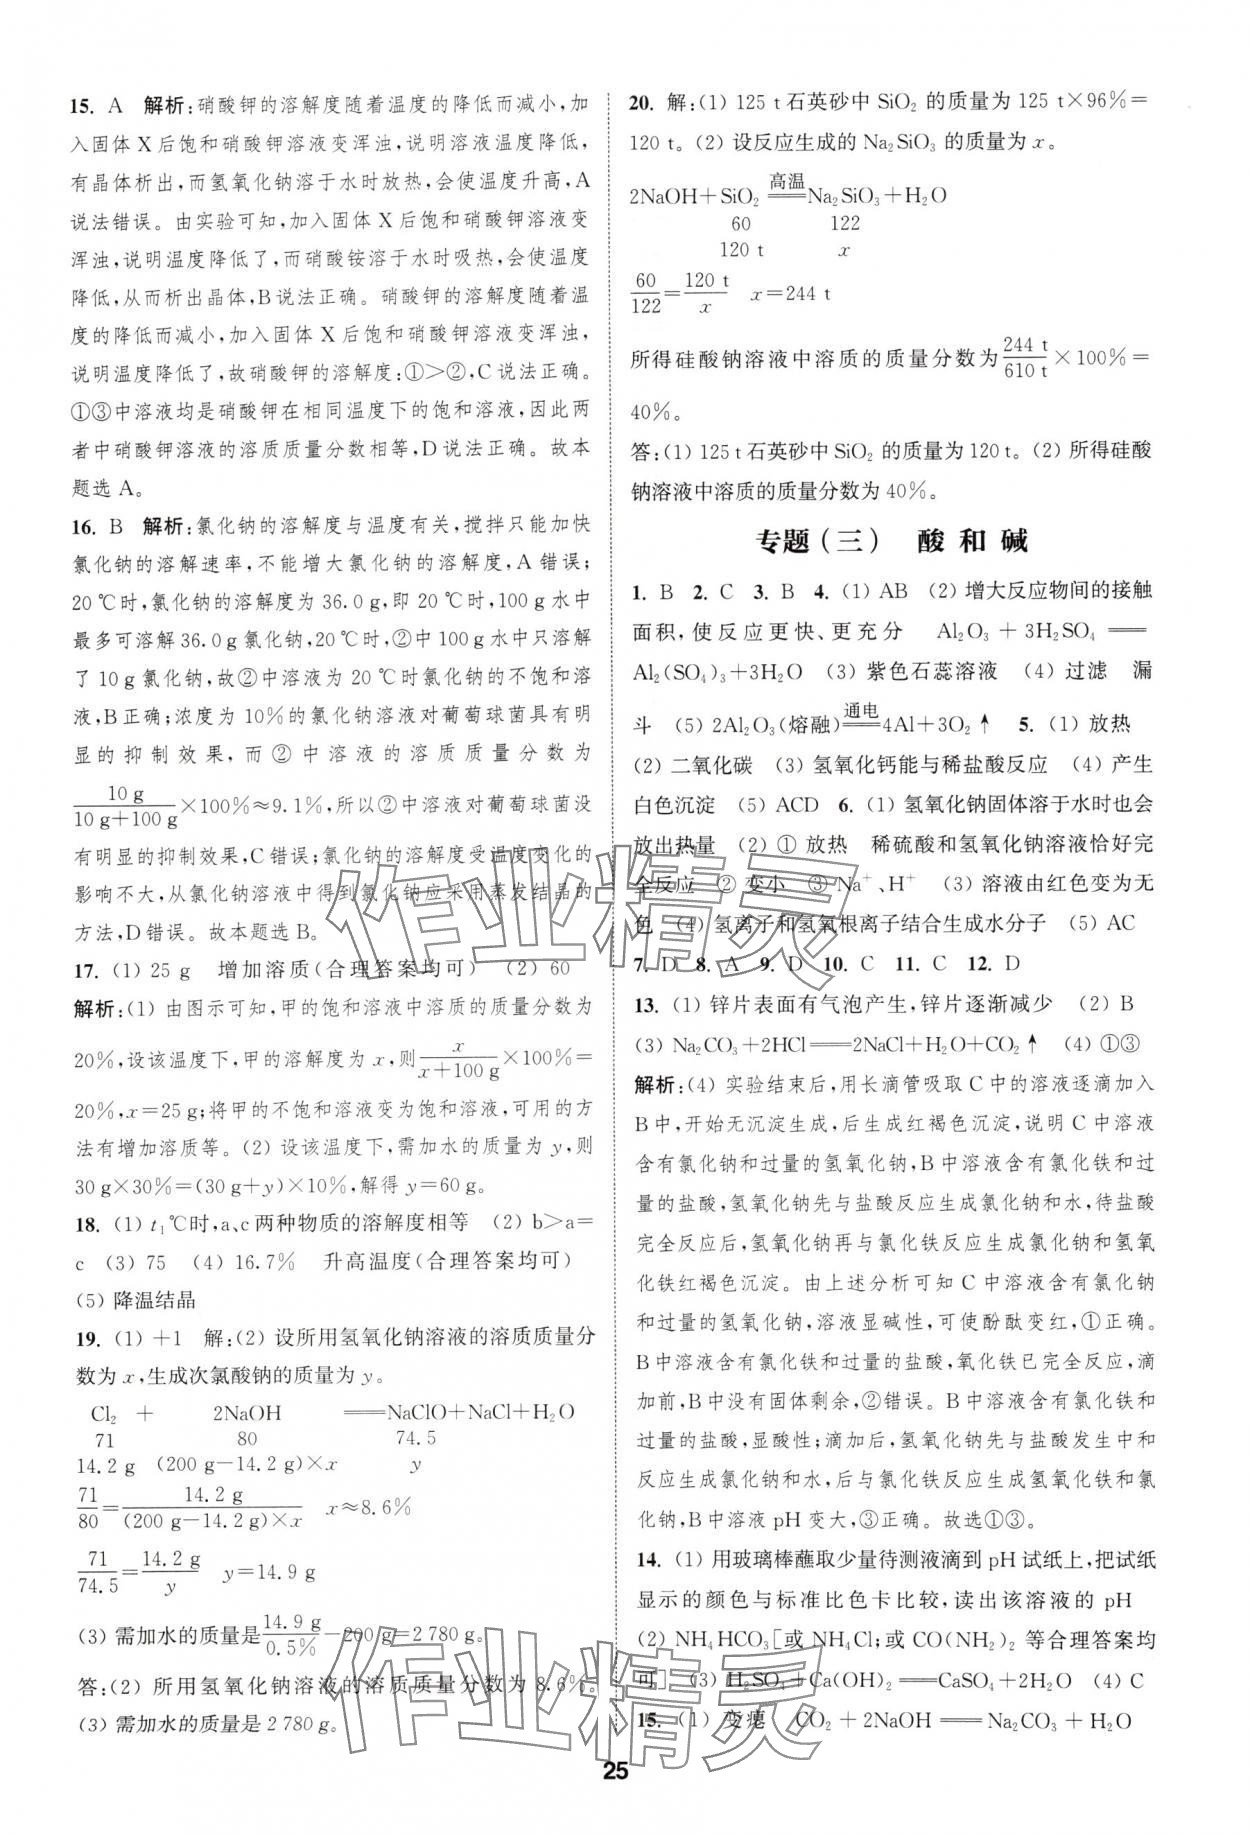 15. A 解析:硝酸钾的溶解度随着温度的降低而减小,加
入固体 X 后饱和硝酸钾溶液变浑浊,说明溶液温度降低,
有晶体析出,而氢氧化钠溶于水时放热,会使温度升高,A
说法错误。由实验可知,加入固体 X 后饱和硝酸钾溶液变
浑浊,说明温度降低了,而硝酸铵溶于水时吸热,会使温度
降低,从而析出晶体,B 说法正确。硝酸钾的溶解度随着温
度的降低而减小,加入固体 X 后饱和硝酸钾溶液变浑浊,
说明温度降低了,故硝酸钾的溶解度:①>②,C 说法正确。
①③中溶液均是硝酸钾在相同温度下的饱和溶液,因此两
者中硝酸钾溶液的溶质质量分数相等,D 说法正确。故本
题选 A。
16. B 解析:氯化钠的溶解度与温度有关,搅拌只能加快
氯化钠的溶解速率,不能增大氯化钠的溶解度,A 错误;
20 ℃时,氯化钠的溶解度为 36.0 g,即 20 ℃时,100 g 水中
最多可溶解 36.0 g 氯化钠,20 ℃时,②中 100 g 水中只溶解
了 10 g 氯化钠,故②中溶液为 20 ℃时氯化钠的不饱和溶
液,B 正确;浓度为 10%的氯化钠溶液对葡萄球菌具有明
显的抑制效果,而②中溶液的溶质质量分数为
10 g/(10 g+100 g)×100%≈9.1%,所以②中溶液对葡萄球菌没
有明显的抑制效果,C 错误;氯化钠的溶解度受温度变化的
影响不大,从氯化钠溶液中得到氯化钠应采用蒸发结晶的
方法,D 错误。故本题选 B。
17. (1) 25 g 增加溶质(合理答案均可) (2) 60
解析:(1) 由图示可知,甲的饱和溶液中溶质的质量分数为
20%,设该温度下,甲的溶解度为 x,则 x/(x+100 g)×100%=
20%,x=25 g;将甲的不饱和溶液变为饱和溶液,可用的方
法有增加溶质等。(2) 设该温度下,需加水的质量为 y,则
30 g×30%=(30 g+y)×10%,解得 y=60 g。
18. (1) t₁℃时,a、c 两种物质的溶解度相等 (2) b>a=
c (3) 75 (4) 16.7% 升高温度(合理答案均可)
(5) 降温结晶
19. (1) +1 解:(2) 设所用氢氧化钠溶液的溶质质量分
数为 x,生成次氯酸钠的质量为 y。
Cl₂ + 2NaOH ══NaClO+NaCl+H₂O
71 80 74.5
14.2 g (200 g-14.2 g)×x y
71/80=14.2 g/((200 g-14.2 g)×x) x≈8.6%
71/74.5=14.2 g/y y=14.9 g
(3) 需加水的质量是14.9 g/0.5%-200 g=2 780 g。
答:(2) 所用氢氧化钠溶液的溶质质量分数为 8.6%。
(3) 需加水的质量是 2 780 g。
20. 解:(1) 125 t 石英砂中 SiO₂ 的质量为 125 t×96%=
120 t。(2) 设反应生成的 Na₂SiO₃ 的质量为 x。
2NaOH+SiO₂ ══高温 Na₂SiO₃+H₂O
60 122
120 t x
60/122=120 t/x x=244 t
所得硅酸钠溶液中溶质的质量分数为244 t/610 t×100%=
40%。
答:(1) 125 t 石英砂中 SiO₂ 的质量为 120 t。(2) 所得硅酸
钠溶液中溶质的质量分数为 40%。
专题(三) 酸和碱
1. B 2. C 3. B 4. (1) AB (2) 增大反应物间的接触
面积,使反应更快、更充分 Al₂O₃+3H₂SO₄══
Al₂(SO₄)₃+3H₂O (3) 紫色石蕊溶液 (4) 过滤 漏
斗 (5) 2Al₂O₃(熔融)══通电 4Al+3O₂↑ 5. (1) 放热
(2) 二氧化碳 (3) 氢氧化钙能与稀盐酸反应 (4) 产生
白色沉淀 (5) ACD 6. (1) 氢氧化钠固体溶于水时也会
放出热量 (2) ① 放热 稀硫酸和氢氧化钠溶液恰好完
全反应 ② 变小 ③ Na⁺、H⁺ (3) 溶液由红色变为无
色 (4) 氢离子和氢氧根离子结合生成水分子 (5) AC
7. D 8. A 9. D 10. C 11. C 12. D
13. (1) 锌片表面有气泡产生,锌片逐渐减少 (2) B
(3) Na₂CO₃+2HCl══2NaCl+H₂O+CO₂↑ (4) ①③
解析:(4) 实验结束后,用长滴管吸取 C 中的溶液逐滴加入
B 中,开始无沉淀生成,后生成红褐色沉淀,说明 C 中溶液
含有氯化钠和过量的氢氧化钠,B 中溶液含有氯化铁和过
量的盐酸,氢氧化钠先与盐酸反应生成氯化钠和水,待盐酸
完全反应后,氢氧化钠再与氯化铁反应生成氯化钠和氢氧
化铁红褐色沉淀。由上述分析可知 C 中溶液含有氯化钠
和过量的氢氧化钠,溶液显碱性,可使酚酞变红,①正确。
B 中溶液含有氯化铁和过量的盐酸,氧化铁已完全反应,滴
加前,B 中没有固体剩余,②错误。B 中溶液含有氯化铁和
过量的盐酸,显酸性;滴加后,氢氧化钠先与盐酸发生中和
反应生成氯化钠和水,后与氯化铁反应生成氢氧化铁和氯
化钠,B 中溶液 pH 变大,③正确。故选①③。
14. (1) 用玻璃棒蘸取少量待测液滴到 pH 试纸上,把试纸
显示的颜色与标准比色卡比较,读出该溶液的 pH
(2) NH₄HCO₃[或 NH₄Cl;或 CO(NH₂)₂ 等合理答案均
可] (3) H₂SO₄+Ca(OH)₂══CaSO₄+2H₂O (4) C
15. (1) 变瘪 CO₂+2NaOH══Na₂CO₃+H₂O
25
作业精灵
作业精灵